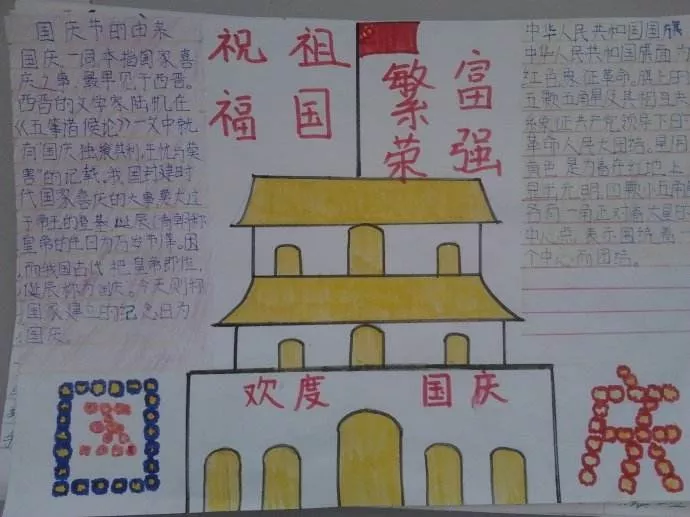 国庆节的由来
国庆一词,本指国家喜
庆之事,最早见于西晋。
西晋的文学家陆机在
《五等诸侯论》一文中就
有"国庆独飨其利,主忧与其
害"的记载,我国封建时
代国家喜庆的大事莫大过
于帝王的登基、诞辰(清朝称
皇帝的生日为万岁节)等。因
而我国古代把皇帝即位、
诞辰称为国庆。今天则称
国家建立的纪念日为
国庆
祝福
祖国
繁荣
富强
欢度 国庆
中华人民共和国国旗
中华人民共和国旗面为
红色,象征革命,旗上的
五颗五角星及其相互关
系象征共产党领导下的
革命人民大团结,星用
黄色是为着在红地上
显出光明,四颗小五角
各有一角正对着大星的
中心点,表示围绕着一
个中心而团结。
国
庆